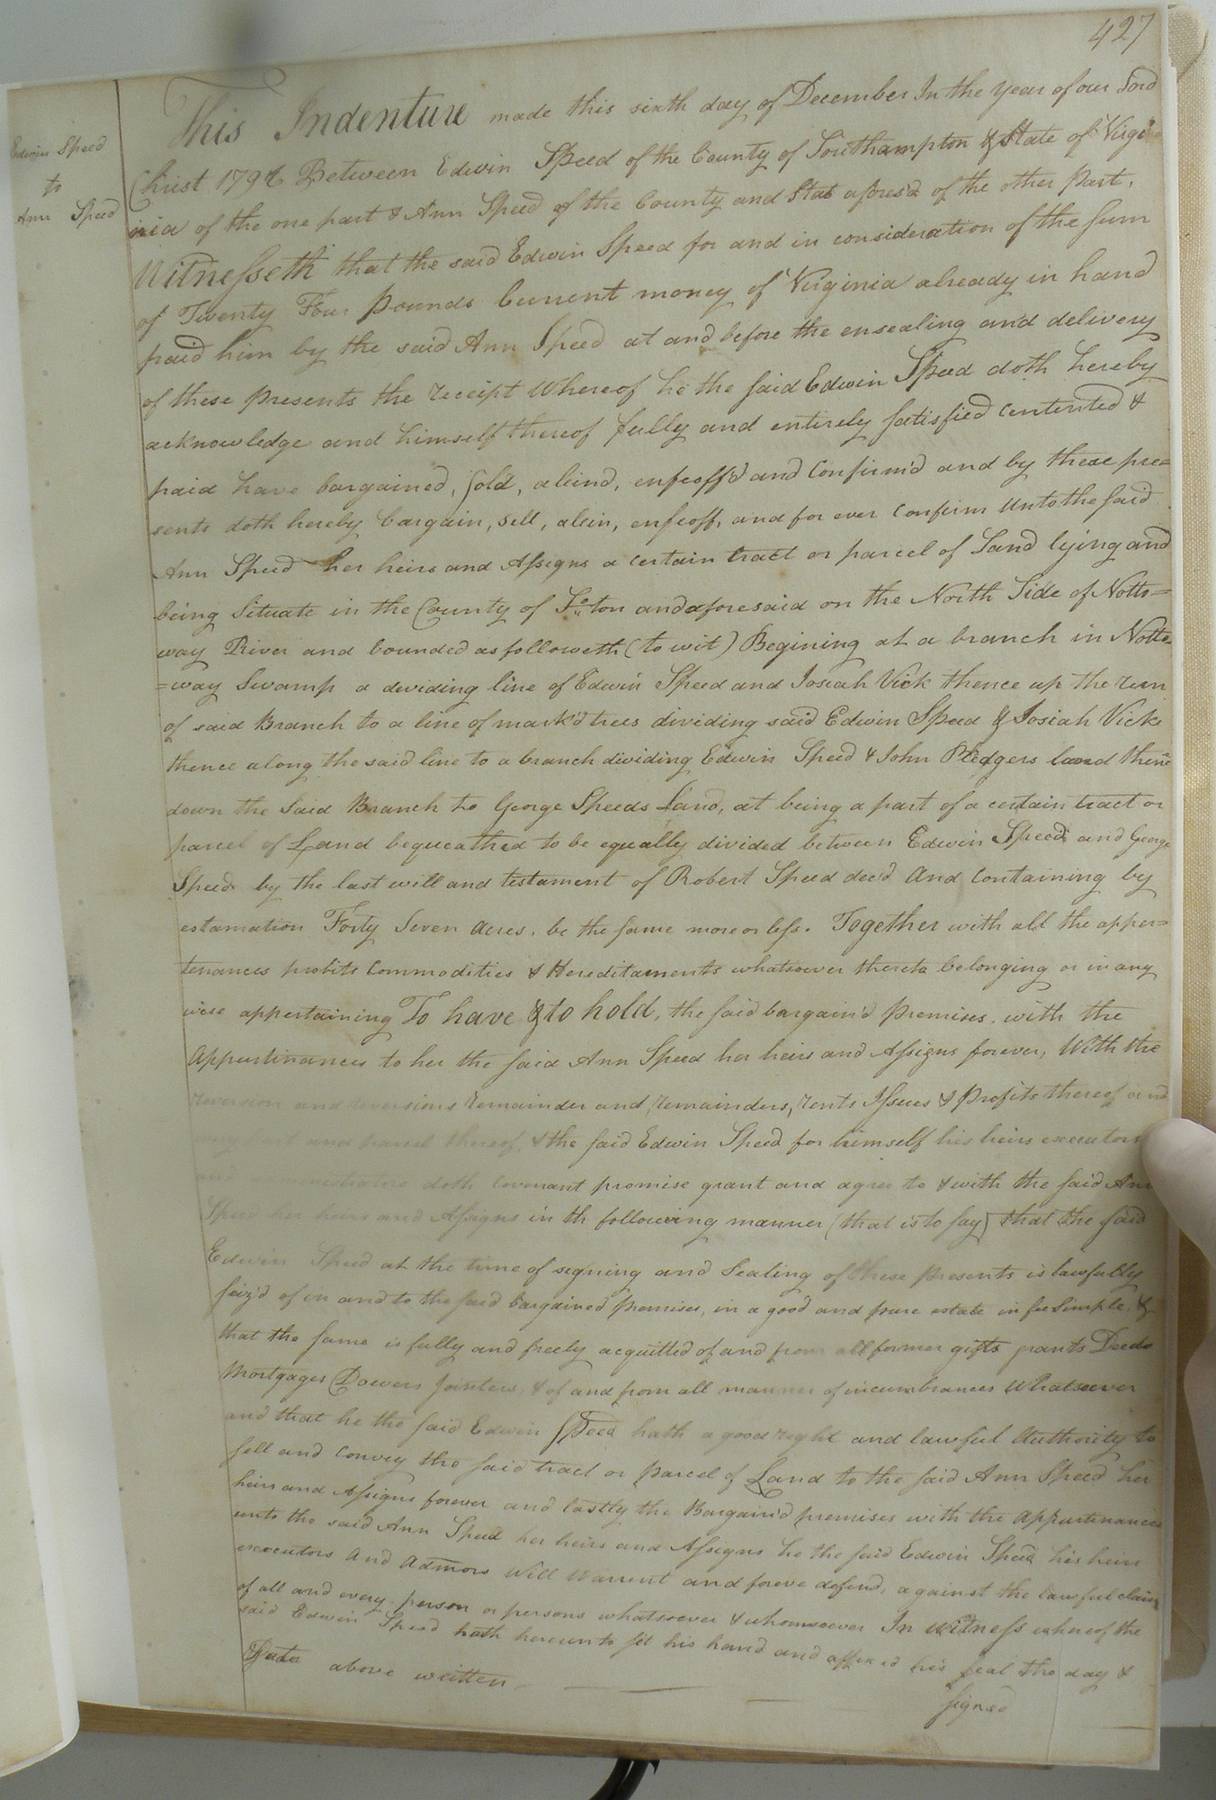 427
Edwin Speed
to
Ann Speed
This Indenture made this sixth day of December In the Year of our Lord
Christ 1792 Between Edwin Speed of the County of Southampton & State of Virgi
nia of the one part & Ann Speed of the County and State afores'd of the other Part,
Witnesseth that the said Edwin Speed for and in consideration of the sum
of Twenty Four Pounds Current money of Virginia already in hand
paid him by the said Ann Speed at and before the ensealing and delivery
of these presents the receipt Whereof he the said Edwin Speed doth hereby
acknowledge and himself thereof fully and entirely satisfied contented &
paid have bargained, sold, aliend, enfeoff'd and Confirm'd and by these pre=
sents doth hereby bargain, sell, alein, enfeoff, and for ever Confirm Unto the said
Ann Speed her heirs and Assigns a certain tract or parcel of Land lying and
being Situate in the County of S:o:ton and aforesaid on the North Side of Notto=
way River and bounded as followeth (to wit) Begining at a branch in Notto
=way Swamp a dividing line of Edwin Speed and Josiah Vick thence up the run
of said Branch to a line of mark'd trees dividing said Edwin Speed & Josiah Vick
thence along the said line to a branch dividing Edwin Speed & John Pledgers land thence
down the Said Branch to George Speeds Land, at being a part of a certain tract or
parcel of Land bequeathed to be equally divided between Edwin Speed and George
Speed by the last will and testament of Robert Speed dec'd And Containing by
estamation Forty Seven Acres, be the same more or less. Together with all the apper=
tenances profits Commodities & Hereditaments whatsoever thereto belonging or in any
wise appertaining To have & to hold, the said bargain'd Premises, with the
Appurtinances to her the said Ann Speed her heirs and Assigns forever, With the
reversion and reversions remainder and remainders, rents Issues & Profits thereof and
every part and parcel thereof, & the said Edwin Speed for himself his heirs executors
and administrators doth Covenant promise grant and agree to & with the said Ann
Speed her heirs and Assigns in th following manner (that is to say) that the said
Edwin Speed at the time of segning and Sealing of these presents is lawfully
seiz'd of in and to the said bargained Premises, in a good and pure estate in fee Simple, &
that the same is fully and freely acquitted of and from all former gifts grants Deeds
Mortgages Dowers Jointers, & of and from all manner of incumbrances Whatsoever
and that he the said Edwin Speed hath a good right and lawful Authority to
sell and Convey the said tract or parcel of Land to the said Ann Speed her
heirs and Assigns forever and lastly the Bargain'd premises with the Appurtinances
unto the said Ann Speed her heirs and Assigns he the said Edwin Speed his heirs
executors And Admors Will Warrent and foreve defend, against the lawful claim
of all and every person or persons whatsoever & whomsoever In witness whereof the
said Edwin Speed hath hereunto set his hand and affixed his seal the day &
Date above written
signed